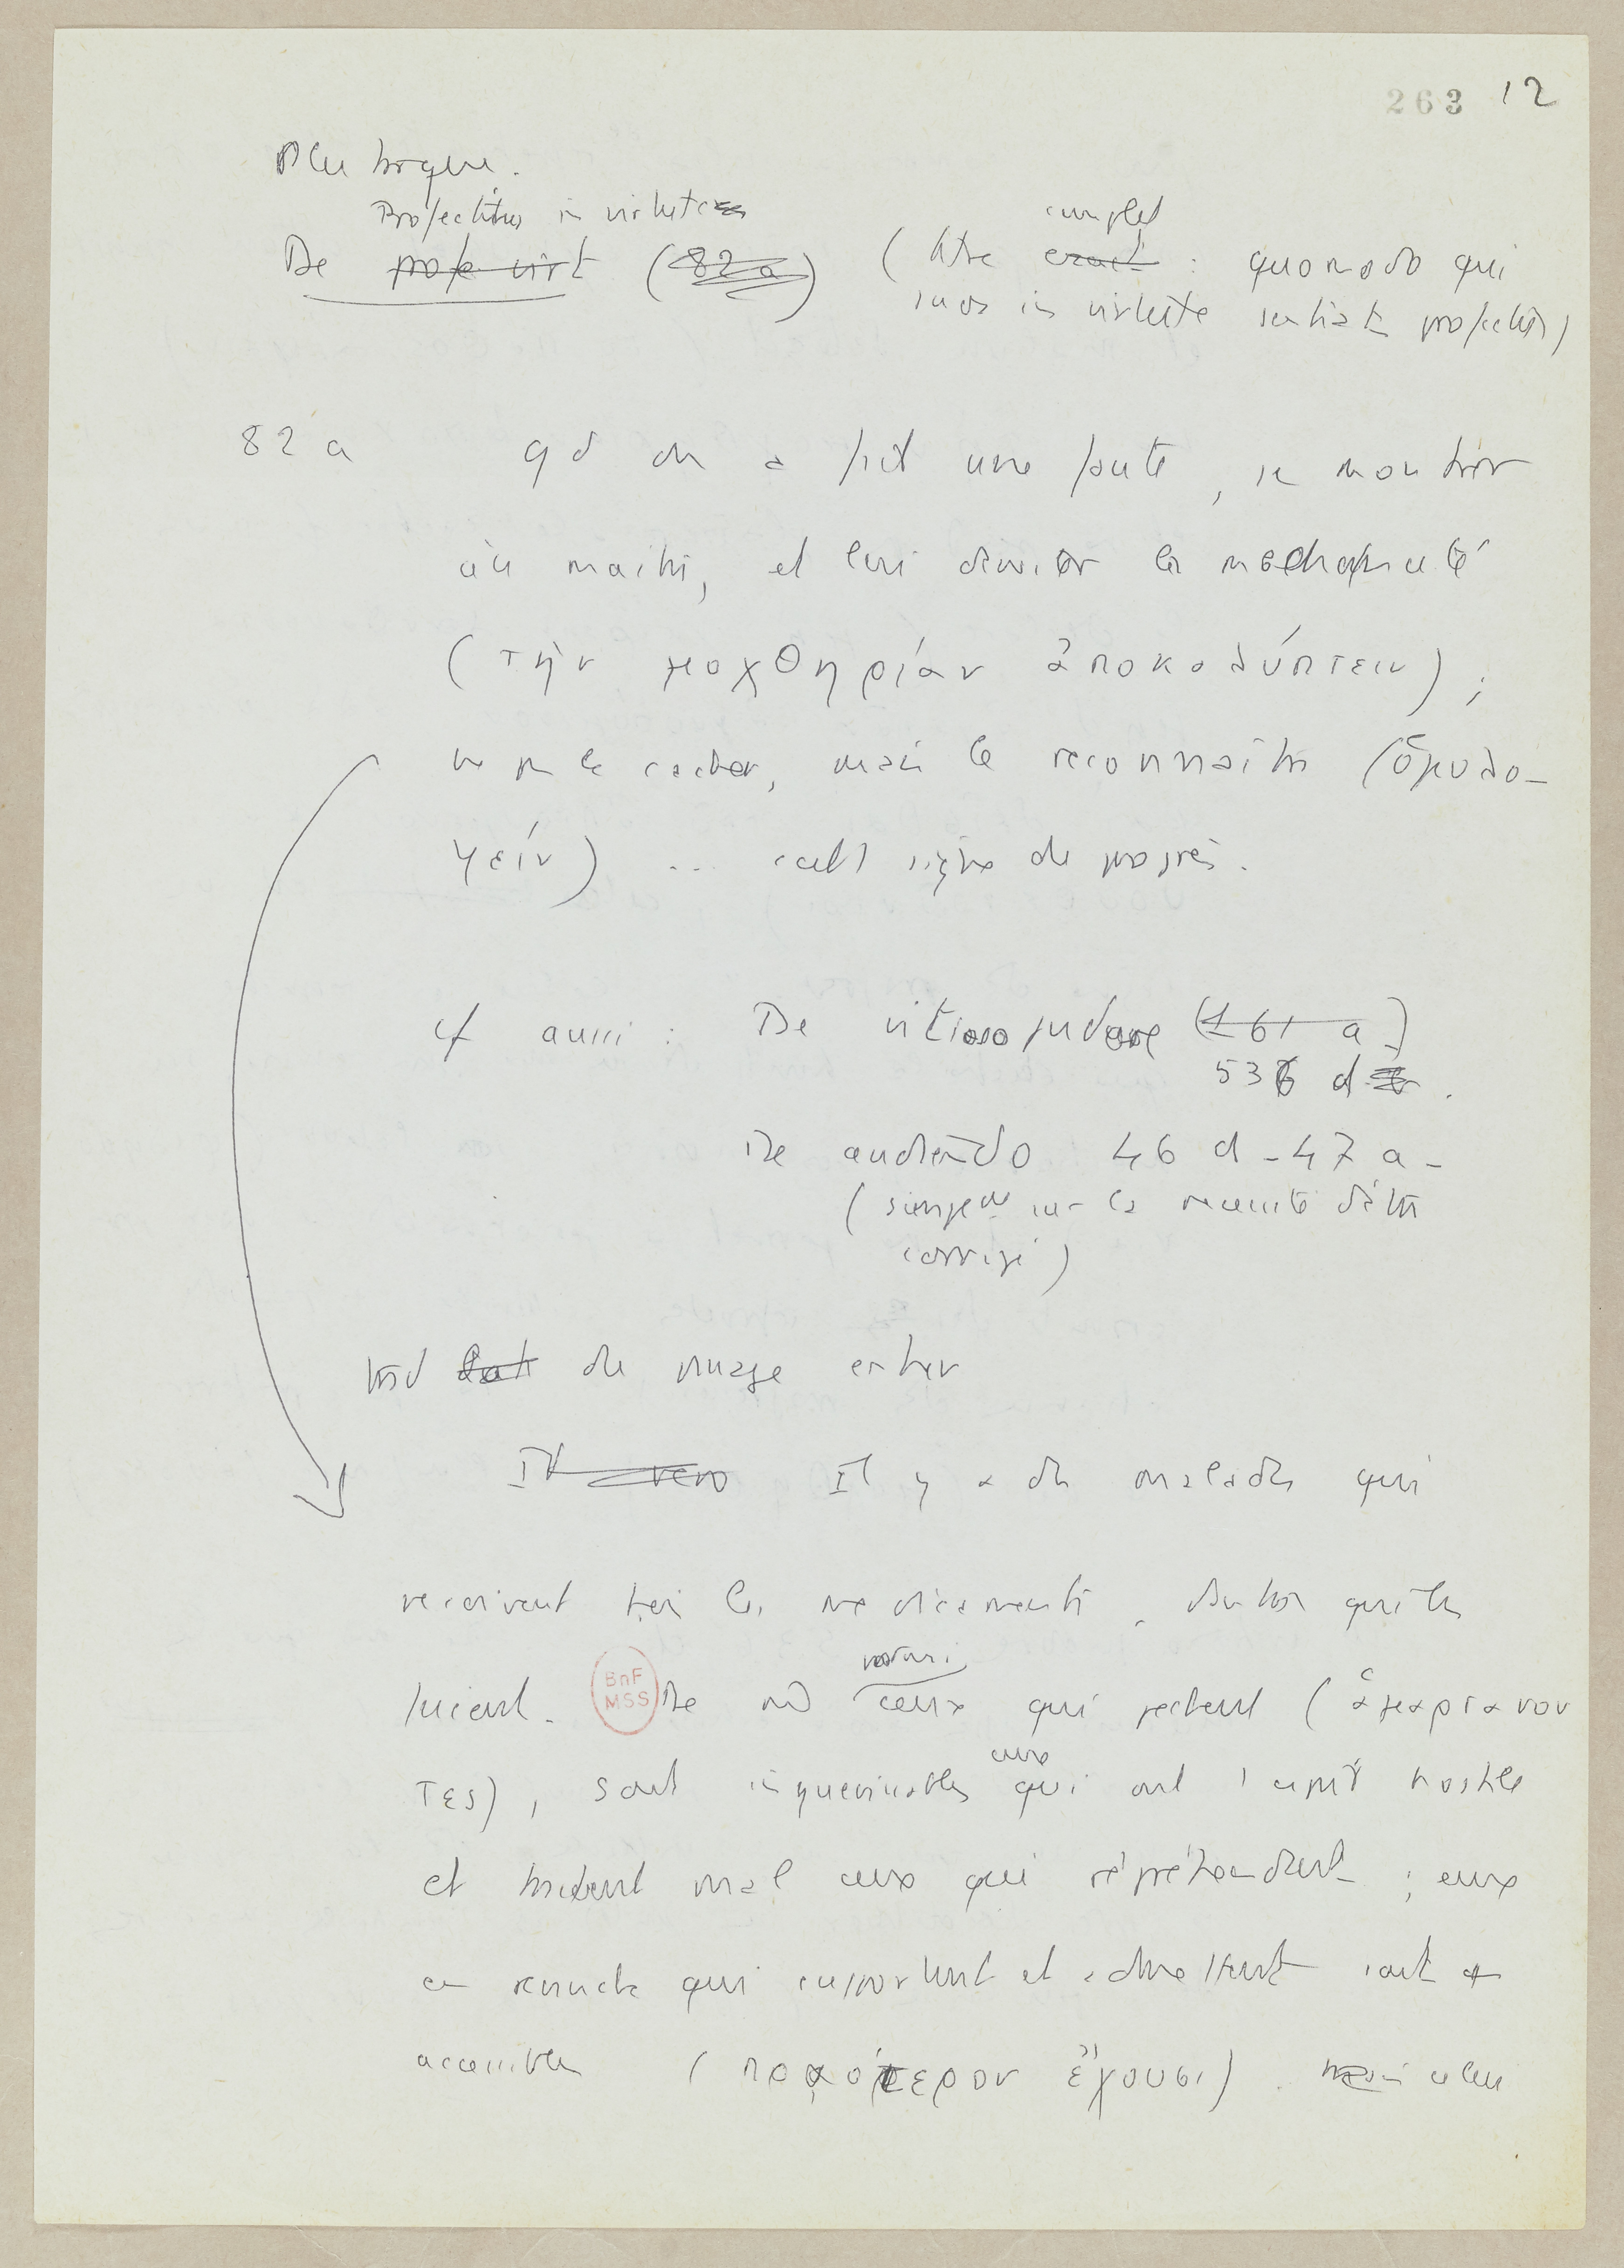 263 12
Plutarque.
Profectibus in virtute
De prof virt (82a) (titre exact complet : quomodo qui
suos in virtute sentiat profectus)
82 a qd on a fait une faute, se montrer
au maître, et lui dévoiler la méchanceté
(τὴν μοχθηρίαν ἀποκαλύπτειν) ;
ne pas la cacher, mais la reconnaître (ὁμολο-
γεῖν) ... c'est signe de progrès.
cf aussi : De vitioso pudore (161 a)
536 d.
De audiendo 46 d - 47 a -
( sur la nécessité d'être
corrigé)
trad de passage entier
Il y a des malades qui
reçoivent les médicaments, qu'ils
fuient. De m ceux qui pechent (ἁμαρτανον
τες), sont inguerissables ceux qui ont l'esprit hostile
et traitent mal ceux qui répréhendent ; ceux
en revanche qui supportent et admettent sont +
accessibles (πραότερον ἔχουσι).
BnF
MSS